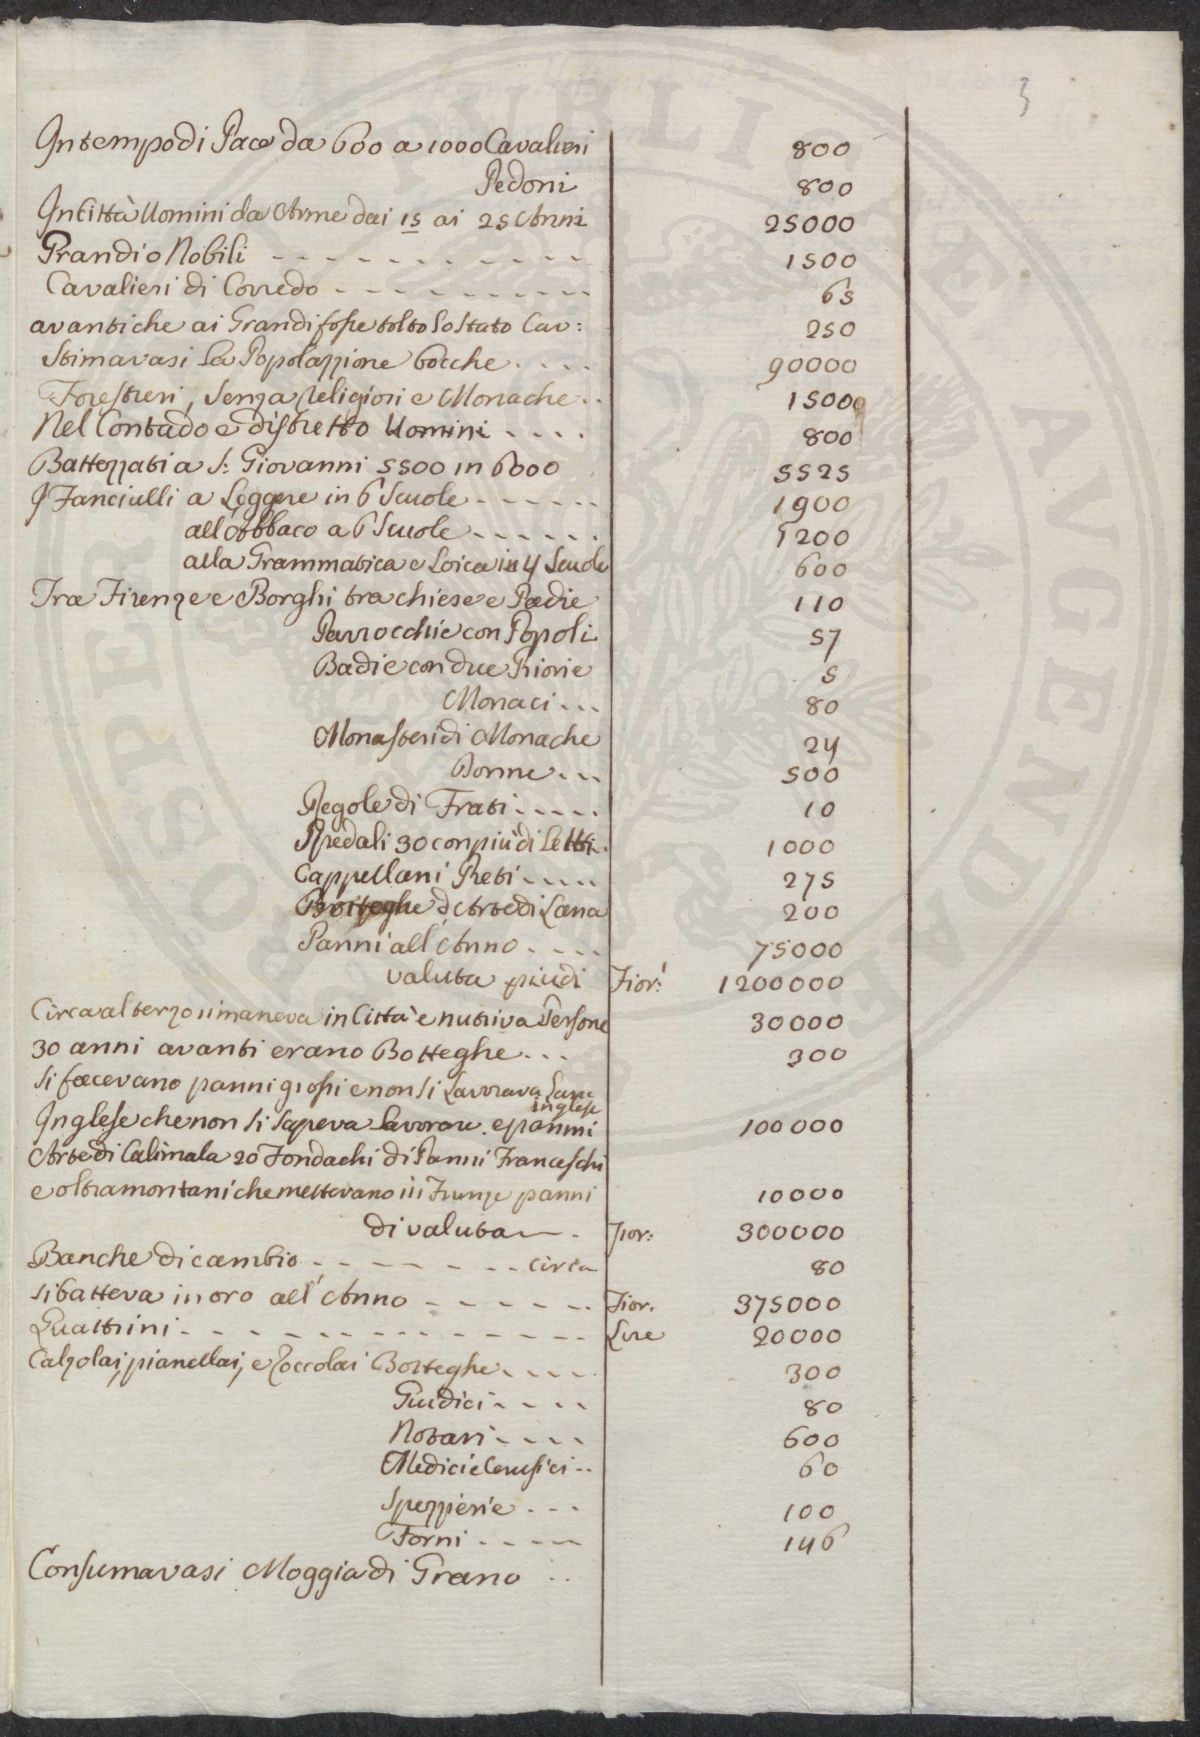 3
In tempo di Pace da 600 a 1000 Cavalieri 800
Pedoni 800
In Città Uomini da Arme dai 15 ai 25 Anni 25000
Grandi o Nobili - - - - - - - - - - - 1500
Cavalieri di Corredo - - - - - - - - - 65
avanti che ai Grandi fosse tolto lo stato Cav: 250
Stimavasi la Popolazzione bocche - - - - 90000
Forestieri, senza religiosi e Monache - - 1500
Nel Contado e distretto Uomini - - - - 800
Battezzati a S: Giovanni 5500 in 6000 5525
I Fanciulli a Leggere in 6 Scuole - - - - - - 1900
all'Abbaco a 6 Scuole - - - - - - 1200
alla Grammatica e Loica in 4 Scuole 600
Tra Firenze e Borghi tra chiese e Badie 110
Parrocchie con Popoli 57
Badie con due Priorie 5
Monaci - - - 80
Monasteri di Monache 24
Donne - - - 500
Regole di Frati - - - - - 10
Spedali 30 con più di Letti - 1000
Cappellani Preti - - - - 275
Botteghe d'Arte di Lana 200
Panni all'Anno - - - - 75000
valuta più di Fior: 1200000
Circa al terzo rimaneva in Città e nutriva Persone 30000
30 anni avanti erano Botteghe - - - 300
Si facevano panni grossi e non si Lavorava Lana
inglese
Inglese che non si sapeva Lavorare e panni 100000
Arte di Calimala 20 Fondachi di Panni Franceschi
e oltramontani che mettevano in Firenze panni 10000
di valuta - - Fior: 300000
Banche di cambio - - - - - - - - circa 80
si batteva in oro all'Anno - - - - - - Fior. 375000
Quattrini - - - - - - - - - - - - Lire 20000
Calzolai, pianellai, e Zoccolai Botteghe - - - - 300
Giudici - - - - 80
Notari - - - - 600
Medici e Cerusici - - 60
Spezzierie - - - 100
Forni - - - - - 146
Consumavasi Moggia di Grano - -